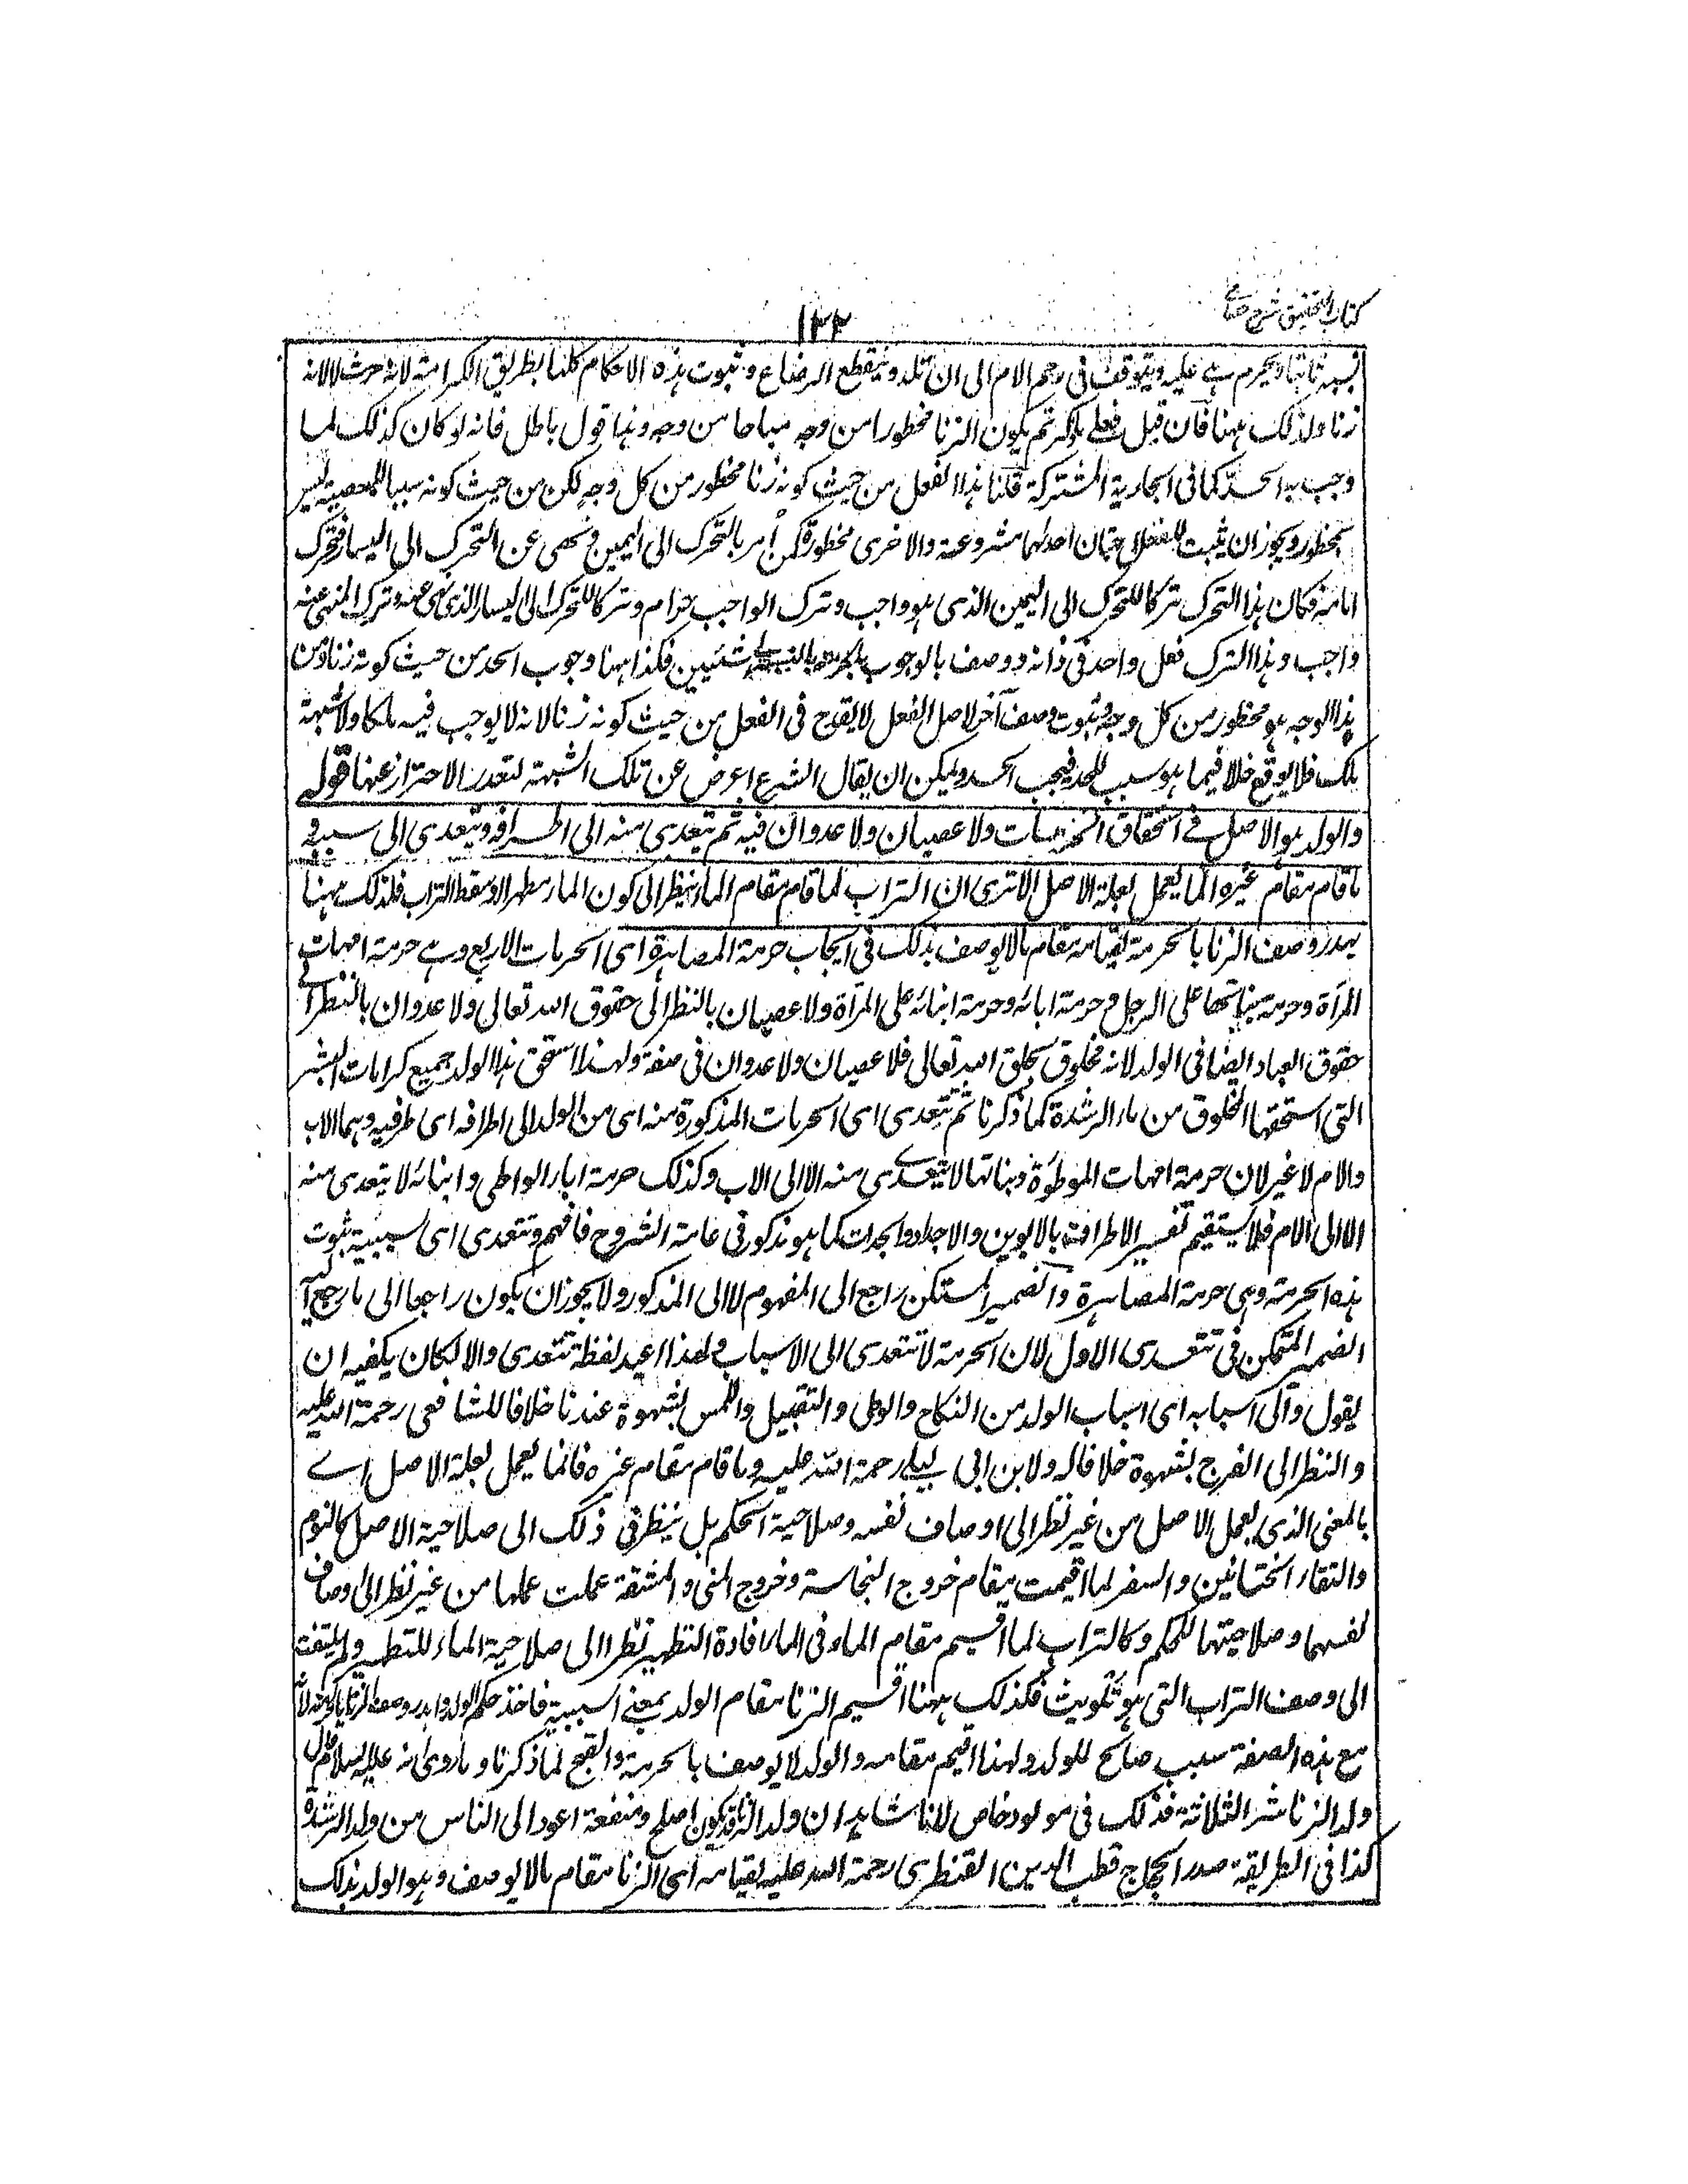 كتاب التحقيق شرح حسامى
١٢٢
النسبة ثابتا ويحرم هى عليه ويتوقف فى رجم الام الى ان تلد وينقطع الرضاع وثبوت هذه الاحكام كلها بطريق الكرامة لانه حرث لا لانه
زنا ولذلك ههنا فان قيل فعلى ثم يكون الزنا محظورا من وجه مباحا من وجه وهذا قول باطل فانه لو كان كذلك لما
وجب به الحد كما فى الجارية المشتركة قلنا هذا الفعل من حيث كونه زنا محظور من كل وجه لكن من حيث كونه سببا ليس
بمحظور ويجوز ان يثبت للفعل جهتان احدهما مشروعة والاخرى محظورة كمن امر بالتحرك الى اليمين ونهى عن التحرك الى اليسار فتحرك
امامه فكان هذا التحرك تركا للتحرك الى اليمين الذى هو واجب وترك الواجب حرام وتركا للتحرك الى اليسار الذى نهى عنه وترك المنهى عنه
واجب وهذا الترك فعل واحد فى ذاته ووصف بالوجوب شيئين فكذا ههنا وجوب الحد من حيث كونه زنا ومن
هذا الوجه هو محظور من كل وجه وثبوت وصف آخر لاصل الفعل لا يقدح فى الفعل من حيث كونه زنا لانه لا يوجب فيه ملكا ولا شبهة
ملك فلا يوقع خللا فيما هو سبب للحد فيجب الحد ويمكن ان يقال الشرع اعرض عن تلك الشبهة لتعذر الاحتراز عنها قوله
والولد هو الاصل فى استحقاق الحرمات ولا عصيان ولا عدوان فيه ثم يتعدى منه الى اطرافه ويتعدى الى سببه و
ما قام مقام غيره انما يعمل بعلة الاصل الا ترى ان التراب لما قام مقام الماء نظر الى كون الماء مطهرا وسقط التراب فلذلك ههنا
يهدر وصف الزنا بالحرمة لقيامه مقام ما لا يوصف بذلك فى ايجاب حرمة المصاهرة اى الحرمات الاربع وهى حرمة امهات
المرأة وحرمة بناتها على الرجل وحرمة ابائه وحرمة ابنائه على المرأة ولا عصيان بالنظر الى حقوق الله تعالى ولا عدوان بالنظر الى
حقوق العباد ايضا فى الولد لانه مخلوق بخلق الله تعالى فلا عصيان ولا عدوان فى صنعه ولهذا استحق هذا الولد جميع كرامات البشر
التى استحقها المخلوق من ماء الرشدة كما ذكرنا ثم تتعدى اى الحرمات المذكورة منه اى من الولد الى اطرافه اى طرفيه وهما الاب
والام لا غير لان حرمة امهات الموطؤة وبناتها لا تتعدى منه الا الى الاب وكذلك حرمة اباء الواطى وابنائه لا يتعدى منه
الا الى الام فلا يستقيم تفسير الاطراف بالابوين والاجداد والجدات كما هو مذكور فى عامة الشروح فافهم وتتعدى اى سببية ثبوت
هذه الحرمة وهى حرمة المصاهرة والضمير المستكن راجع الى المفهوم لا الى المذكور ولا يجوز ان يكون راجعا الى ما رجع اليه
الضمير المتمكن فى تتعدى الاول لان الحرمة لا تتعدى الى الاسباب ولهذا اعيد لفظة تتعدى والا لكان يكفيه ان
يقول والى اسبابه اى اسباب الولد من النكاح والوطى والتقبيل واللمس بشهوة عندنا خلافا للشافعى رحمة الله عليه
والنظر الى الفرج بشهوة خلافا له ولابن ابى ليلى رحمة الله عليه وما قام مقام غيره فانما يعمل بعلة الاصل اى
بالمعنى الذى يعمل الاصل من غير نظر الى اوصاف نفسه وصلاحية الحكم بل ينظر فى ذلك الى صلاحية الاصل كالنوم
والتقاء الختانين والسفر لما اقيمت مقام خروج النجاسة وخروج المنى والمشقة عملت عملها من غير نظر الى اوصاف
نفسها وصلاحيتها للحكم وكالتراب لما اقيم مقام الماء فى افادة التطهير نظرا الى صلاحية الماء للتطهير ولم يلتفت
الى وصف التراب التى هو تلويث فكذلك ههنا اقيم الزنا مقام الولد بمعنى السببية فاخذ حكم الولد واهدر وصف الزنا بالحرمة لانه
مع هذه الصفة سبب صالح للولد ولهذا اقيم مقامه والولد لا يوصف بالحرمة والقبح لما ذكرنا وما روى انه عليه السلام قال
ولد الزنا شر الثلاثة فذلك فى مولود خاص لانا نشاهد ان ولد الزنا قد يكون اصلح ومنفعة اعود الى الناس من ولد الرشدة
كذا فى الطريقة صدر الحجاج قطب الدين القنطرى رحمة الله عليه لقيامه اى الزنا مقام ما لا يوصف وهو الولد بذلك